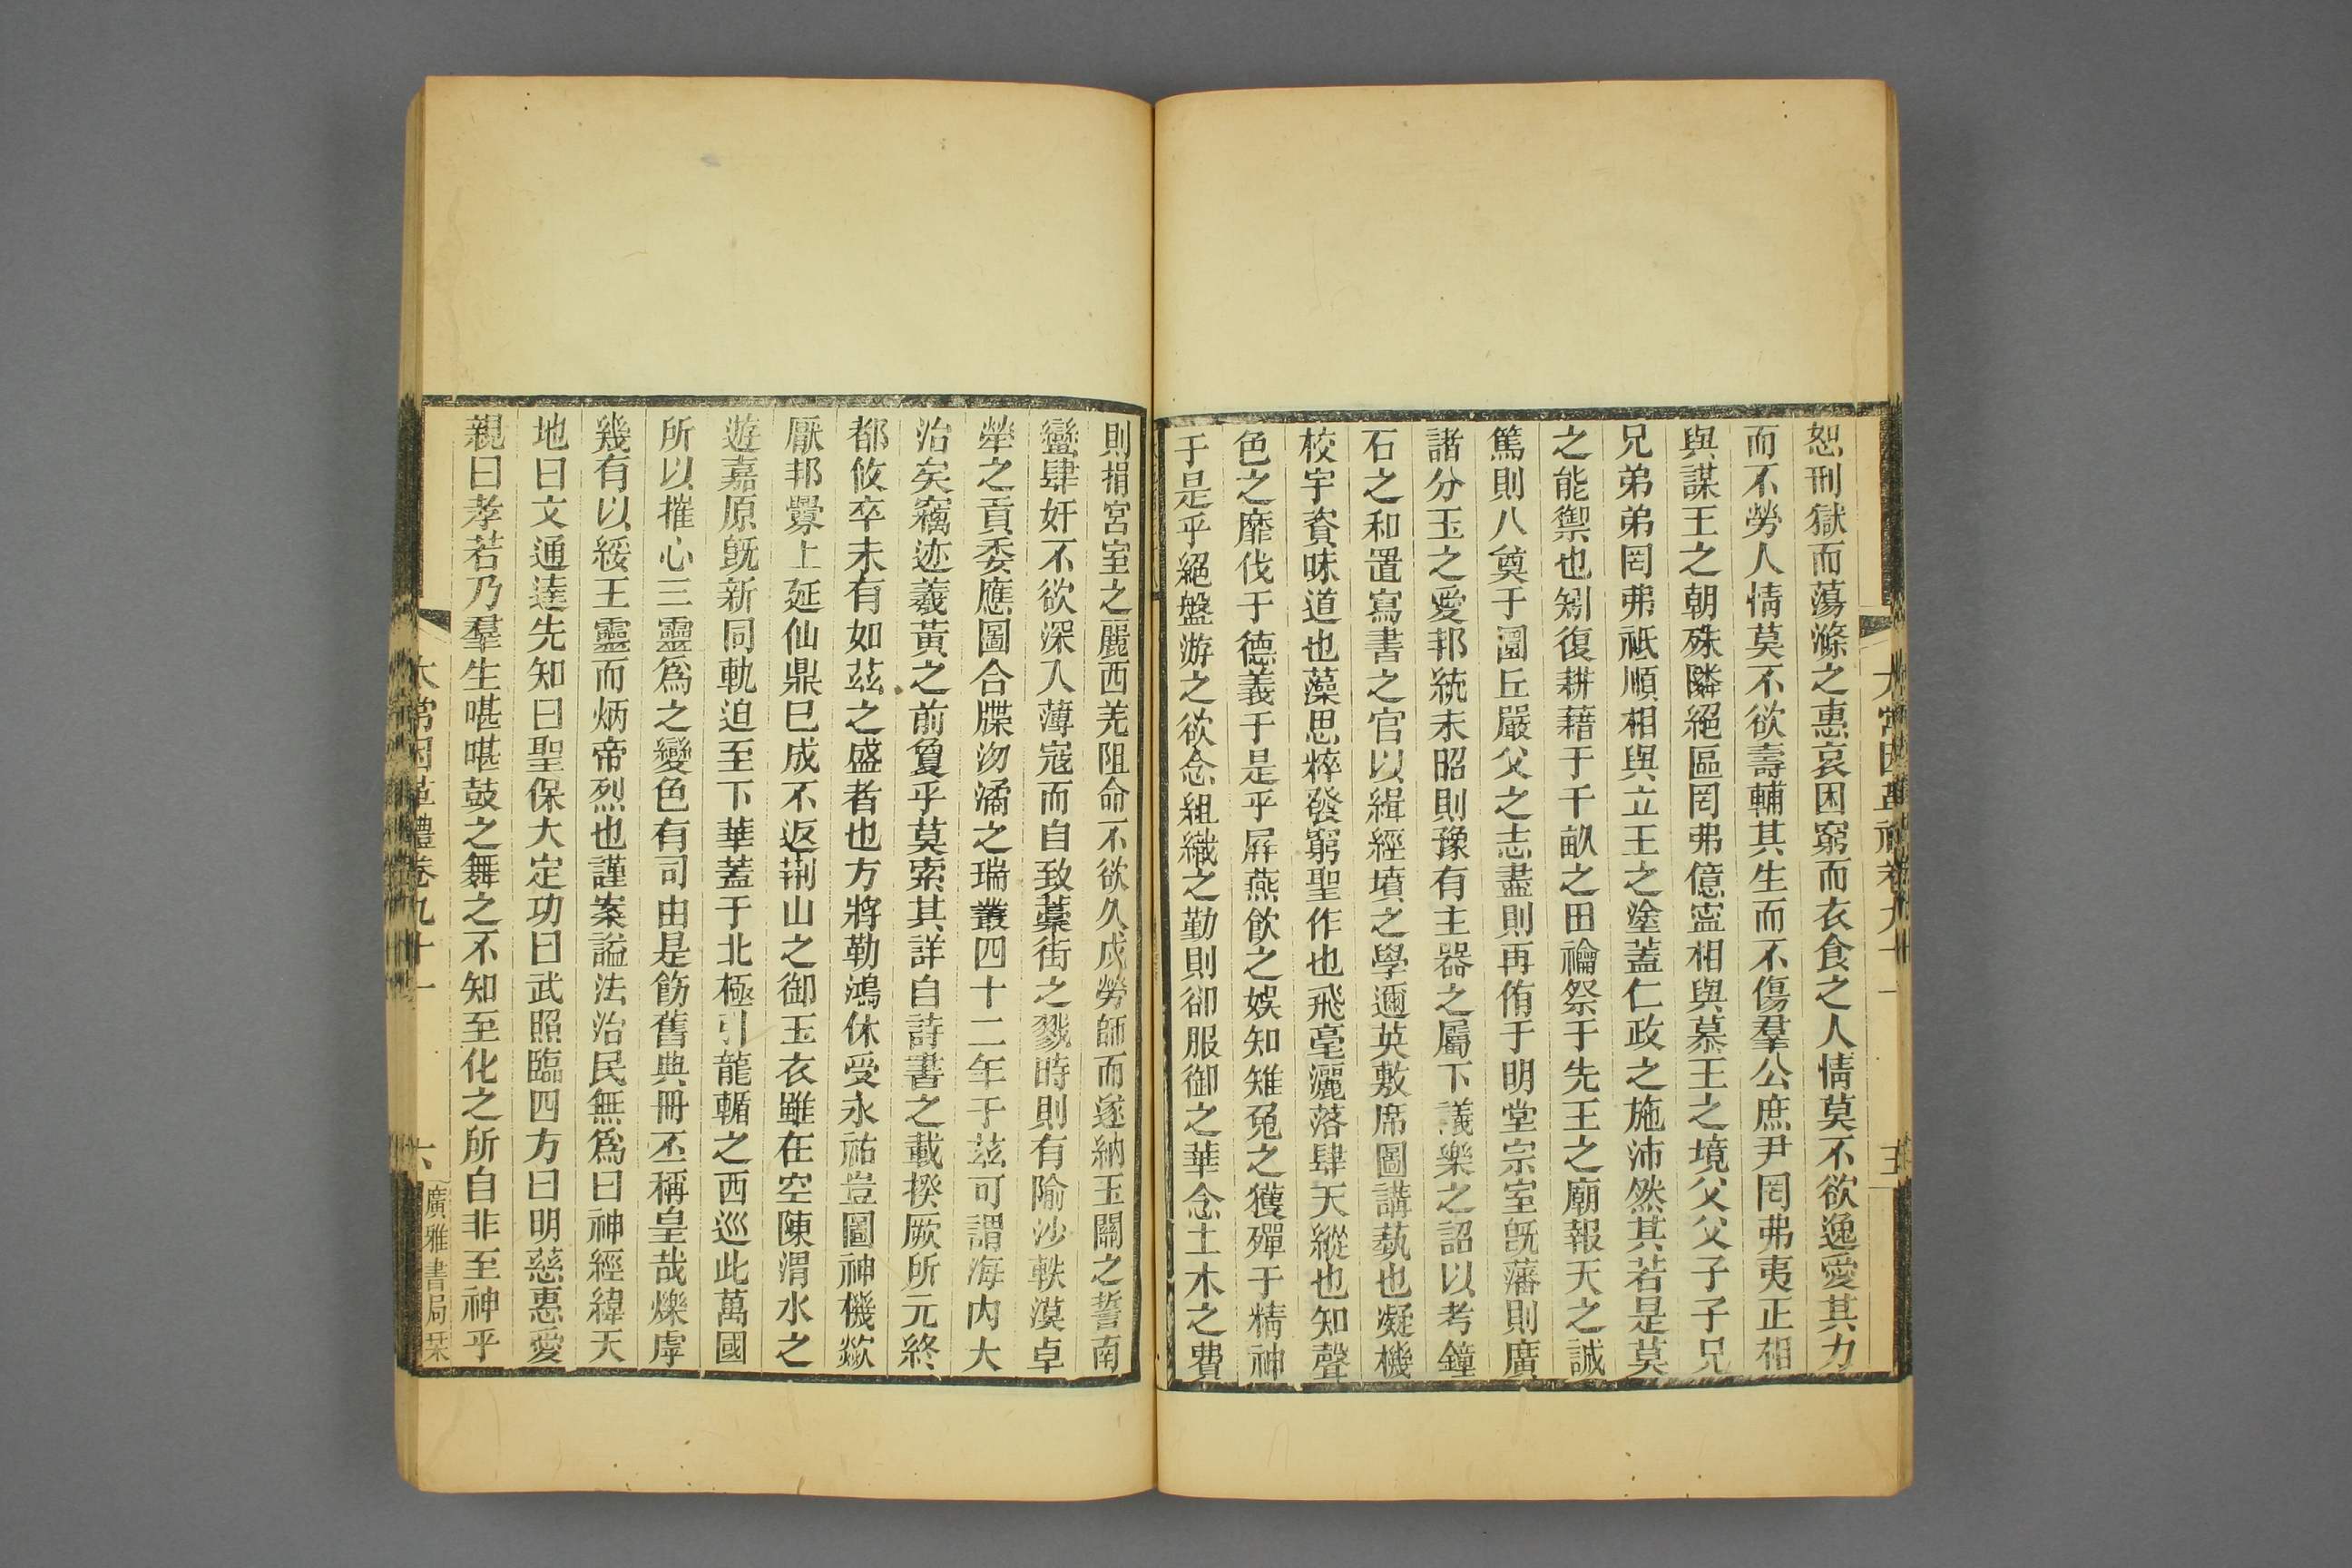 恕刑獄而蕩滌之惠哀困窮而衣食之人情莫不欲逸愛其力
而不勞人情莫不欲壽輔其生而不傷羣公庶尹罔弗夷正相
與謀王之朝殊隣絕區罔弗億寍相與慕王之境父父子子兄
兄弟弟罔弗祗順相與立王之塗蓋仁政之施沛然其若是莫
之能禦也矧復耕藉于千畝之田禴祭于先王之廟報天之誠
篤則八奠于圜丘嚴父之志盡則再侑于明堂宗室旣藩則廣
諸分玉之愛邦統未昭則豫有主器之屬下議樂之詔以考鐘
石之和置寫書之官以緝經墳之學邇英敷席圖講蓺也凝機
校宇資味道也藻思粹發窮聖作也飛毫灑落肆天縱也知聲
色之靡伐于德義于是乎屛燕飲之娛知雉兔之獲殫于精神
于是乎絕盤游之欲念組織之勤則卻服御之華念土木之費
則捐宮室之麗西羌阻命不欲久戍勞師而遂納玉關之誓南
蠻肆奸不欲深入薄寇而自致藁街之戮時則有隃沙軼漠卓
犖之貢委應圖合牒沕潏之瑞叢四十二年于茲可謂海內大
治矣竊迹羲黃之前敻乎莫索其詳自詩書之載揆厥所元終
都攸卒未有如茲之盛者也方將勒鴻休受永祜豈圖神機歘
厭邦釁上延仙鼎巳成不返荆山之御玉衣雖在空陳渭水之
遊嘉原旣新同軌迫至下華蓋于北極引龍輴之西巡此萬國
所以摧心三靈爲之變色有司由是飭舊典冊丕稱皇哉爍虖
幾有以綏王靈而炳帝烈也謹案謚法治民無爲曰神經緯天
地曰文通達先知曰聖保大定功曰武照臨四方曰明慈惠愛
親曰孝若乃羣生嘽嘽鼓之舞之不知至化之所自非至神乎
太常因革禮卷九十一
六
廣雅書局栞